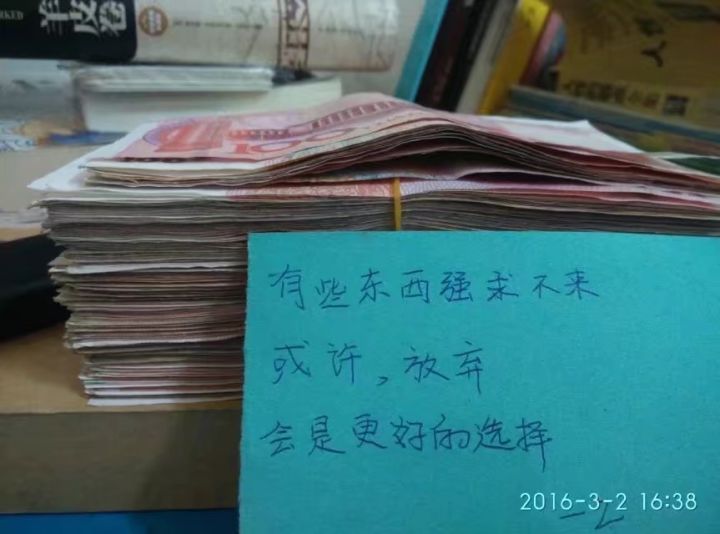 羊皮卷
有些东西强求不来
或许，放弃
会是更好的选择
2016-3-2 16:38